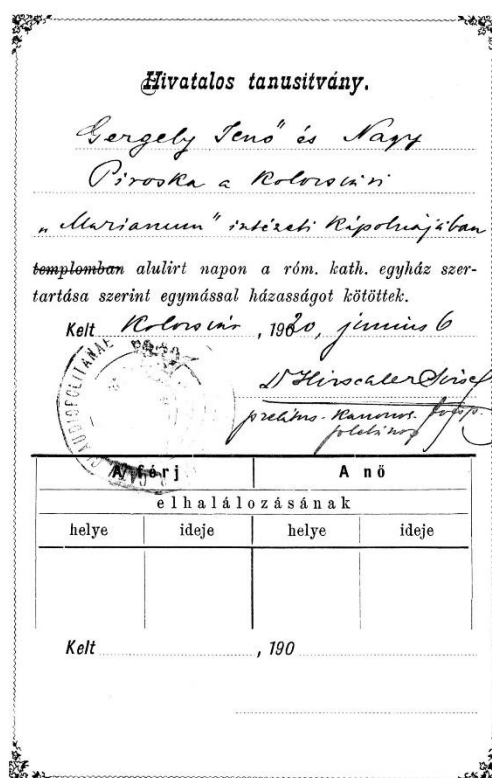 Hivatalos tanusitvány.
Gergely Jenő és Nagy
Piroska a Kolozsvári
„Marianum" intézeti Kápolnájában
templomban alulirt napon a róm. kath. egyház szer-
tartása szerint egymással házasságot kötöttek.
Kelt Kolozsvár, 1920, június 6
Dr Hirschler József
prelátus-kanonok
CLAUDIOPOLITANAE
A férj A nő
elhalálozásának
helye ideje helye ideje
Kelt , 190